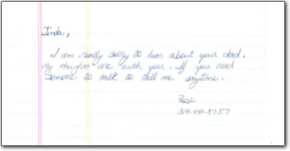 Linda,
I am really sorry to hear about your dad.
My thoughts are with you. If you need
someone to talk to call me anytime.
Rose